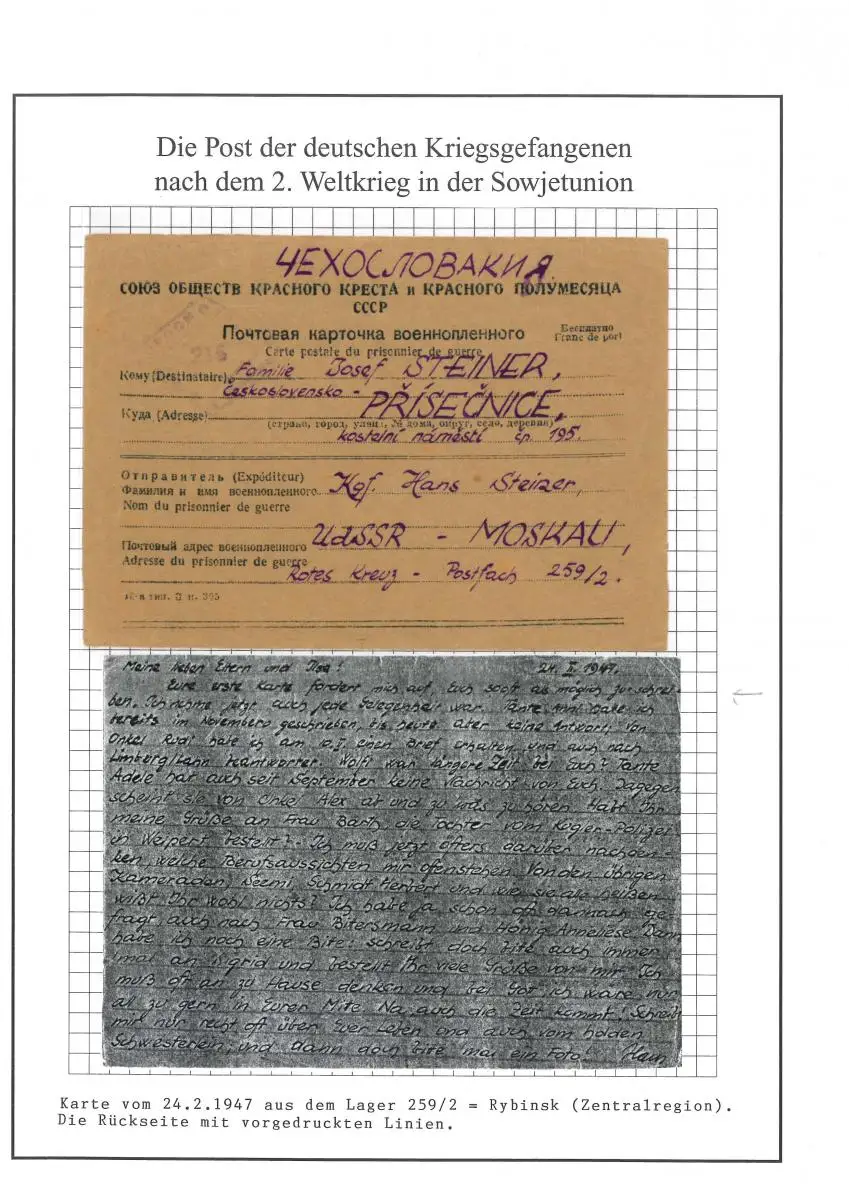 Die Post der deutschen Kriegsgefangenen
nach dem 2. Weltkrieg in der Sowjetunion
ЧЕХОСЛОВАКИЯ
СОЮЗ ОБЩЕСТВ КРАСНОГО КРЕСТА и КРАСНОГО ПОЛУМЕСЯЦА
СССР
Почтовая карточка военнопленного
Бесплатно
Carte postale du prisonnier de guerre
Franc de port
Кому (Destinataire) Familie Josef STEINER,
Československo - PŘÍSEČNICE,
Куда (Adresse)
(страна, город, улица, № дома, округ, село, деревня)
kostelní náměstí čp. 195.
Отправитель (Expéditeur)
Фамилия и имя военнопленного Kgf. Hans Steiner,
Nom du prisonnier de guerre
Почтовый адрес военнопленного UdSSR - MOSKAU,
Adresse du prisonnier de guerre Rotes Kreuz - Postfach 259/2.
Meine lieben Eltern und Ilse! 24. II. 1947.
Eure erste Karte fordert mich auf, Euch sooft als möglich zu schrei-
ben. Ich nehme jetzt auch jede Gelegenheit war. Tante Anni habe ich
bereits im Novembers geschrieben, bis heute aber keine Antwort. Von
Onkel Rudi habe ich am 10.I. einen Brief erhalten und auch nach
Limburg/Lahn beantwortet. Wolfi war längere Zeit bei Euch? Tante
Adele hat auch seit September keine Nachricht von Euch. Dagegen
scheint sie von Onkel Alex ab und zu was zu hören. Habt Ihr
meine Grüße an Frau Barth, die Tochter vom Polizei
in Weipert bestellt? - Ich muß jetzt öfters darüber nachden-
ken, welche Berufsaussichten mir ofenstehen. Von den übrigen
Kameraden, Schmidt Herbert und wie sie alle heißen
wißt Ihr wohl nichts? Ich habe ja schon oft dannach ge-
fragt, auch nach Frau Bitersmann und Hönig Anneliese. Dann
habe ich noch eine Bite: schreibt doch bite auch immer
1mal an Sigrid und bestellt Ihr viele Grüße von mir. Ich
muß oft an zu Hause denken und bei Got ich wäre nur
al zu gern in Eurer Mite. Na, auch die Zeit kommt! Schreibt
mir nur recht oft über Euer Leben und auch vom holden
Schwesterlein, und dann doch bite mal ein Foto! Hans
Karte vom 24.2.1947 aus dem Lager 259/2 = Rybinsk (Zentralregion).
Die Rückseite mit vorgedruckten Linien.